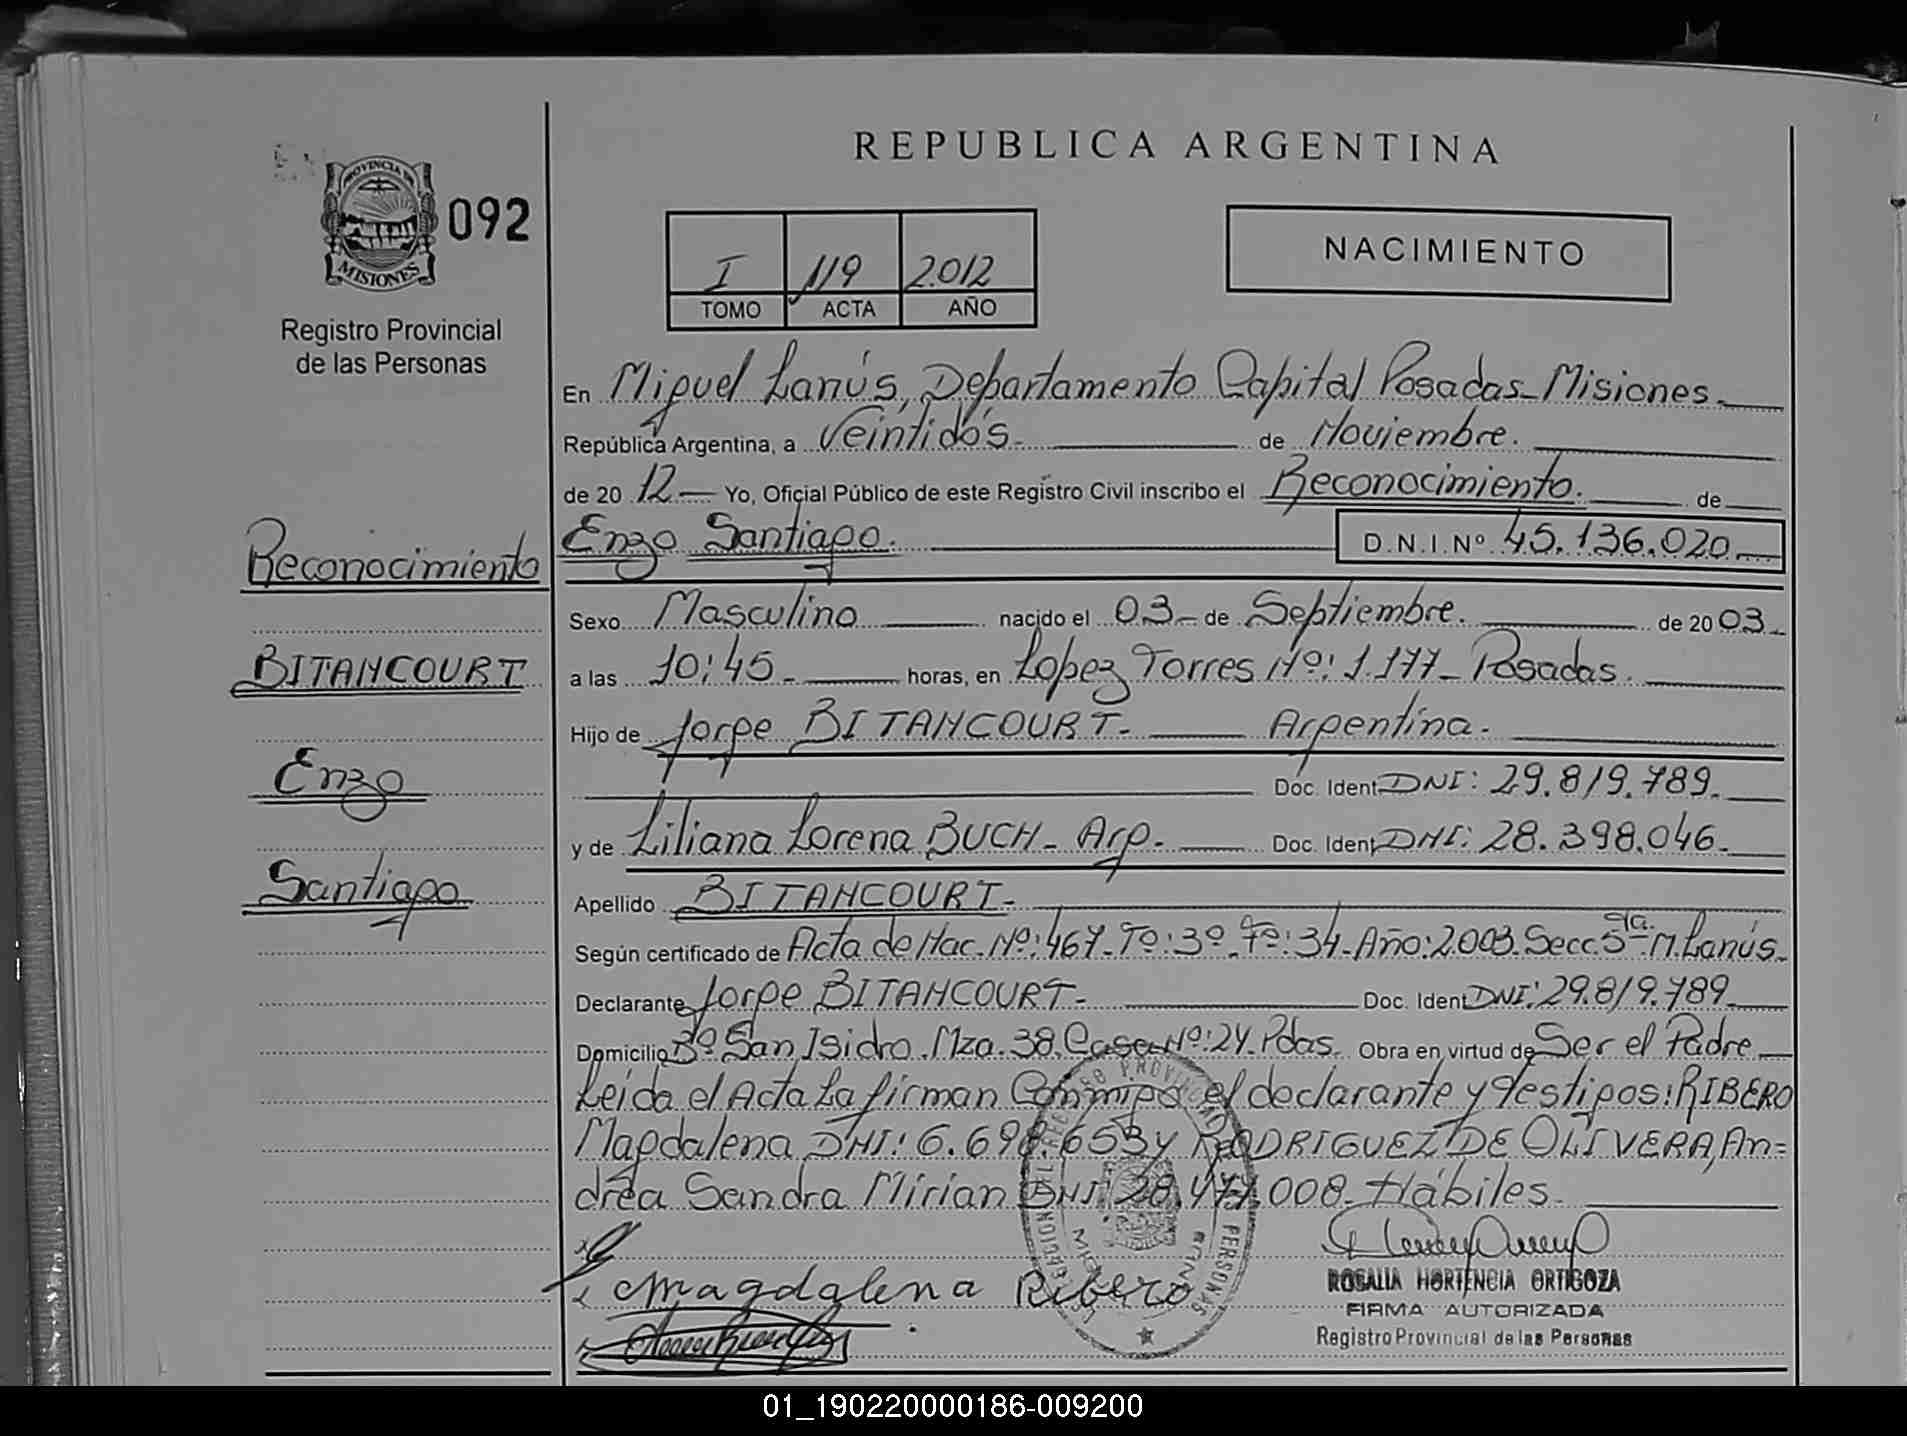 REPUBLICA ARGENTINA
PROVINCIA DE
MISIONES
092
Registro Provincial
de las Personas
I 119 2.012
TOMO ACTA AÑO
NACIMIENTO
En Miguel Lanús, Departamento Capital Posadas - Misiones.
República Argentina, a Veintidós. de Noviembre.
de 20 12 — Yo, Oficial Público de este Registro Civil inscribo el Reconocimiento. de
Enzo Santiago. D.N.I. Nº 45.136.020
Sexo Masculino nacido el 03 - de Septiembre. de 20 03
a las 10:45 - horas, en Lopez Torres Nº: 1.177 - Posadas.
Hijo de Jorge BITANCOURT. Argentina.
Doc. Ident DNI: 29.819.789.
y de Liliana Lorena BUCH - Arg. Doc. Ident DNI: 28.398.046.
Apellido BITANCOURT.
Según certificado de Acta de Nac. Nº: 467 - Tº: 3º - Fº: 34 - Año: 2.003. Secc. 5ta. M. Lanús.
Declarante Jorge BITANCOURT - Doc. Ident DNI: 29.819.789
Domicilio Bº San Isidro. Mza. 38. Casa Nº: 24. Pdas. Obra en virtud de Ser el Padre
Leída el Acta La firman Conmigo el declarante y testigos: RIBERO
Magdalena DNI: 6.698.653 y RODRIGUEZ DE OLIVERA, An=
drea Sandra Mirian DNI 28.477.008 - Hábiles.
Reconocimiento
BITANCOURT
Enzo
Santiago
Magdalena Ribero
ROSALIA HORTENCIA ORTIGOZA
FIRMA AUTORIZADA
Registro Provincial de las Personas
01_190220000186-009200